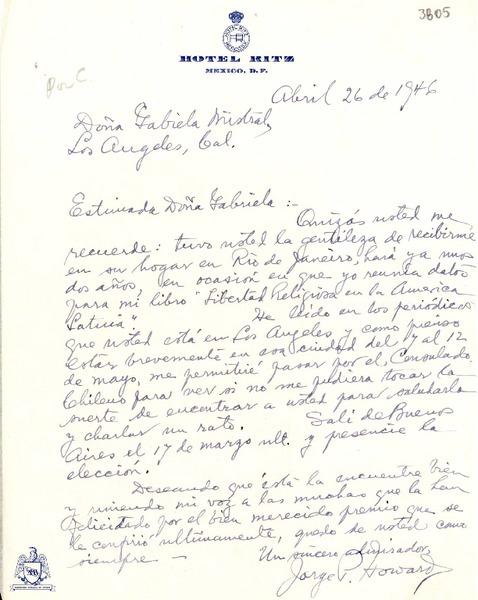 3805
HOTEL RITZ
MEXICO, D.F.
Por C.
Abril 26 de 1946
Doña Gabiela Mistral,
Los Angeles, Cal.
Estimada Doña Gabriela :-
Quizás usted me
recuerde: tuvo usted la gentileza de recibirme
en su hogar en Río de Janeiro, hará ya unos
dos años, en ocasión en que yo reunía datos
para mi libro "Libertad Religiosa en la America
Latina".
He leido en los periódicos
que usted está en Los Angeles y como pienso
estar brevemente en esa ciudad del 7 al 12
de mayo, me permitiré pasar por el Consulado
Chileno para ver si no me pudiera tocar la
suerte de encontrar a usted para saludarla
y charlar un rato.
Salí de Buenos
Aires el 17 de marzo ult. y presencie la
elección.
Deseando que ésta la encuentre bien
y uniendo mi voz a las muchas que la han
felicitado por el bien merecido premio que se
le confirió ultimamente, quedo de usted como
siempre —
Un sincero admirador,
Jorge P. Howard